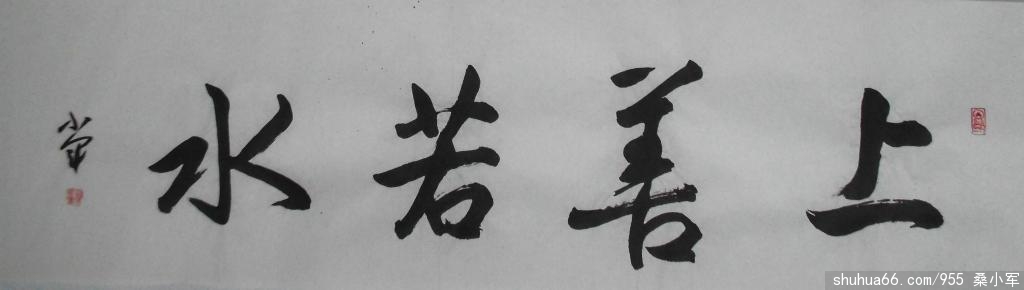 上善若水
小军
shuhua66.com/955 桑小军